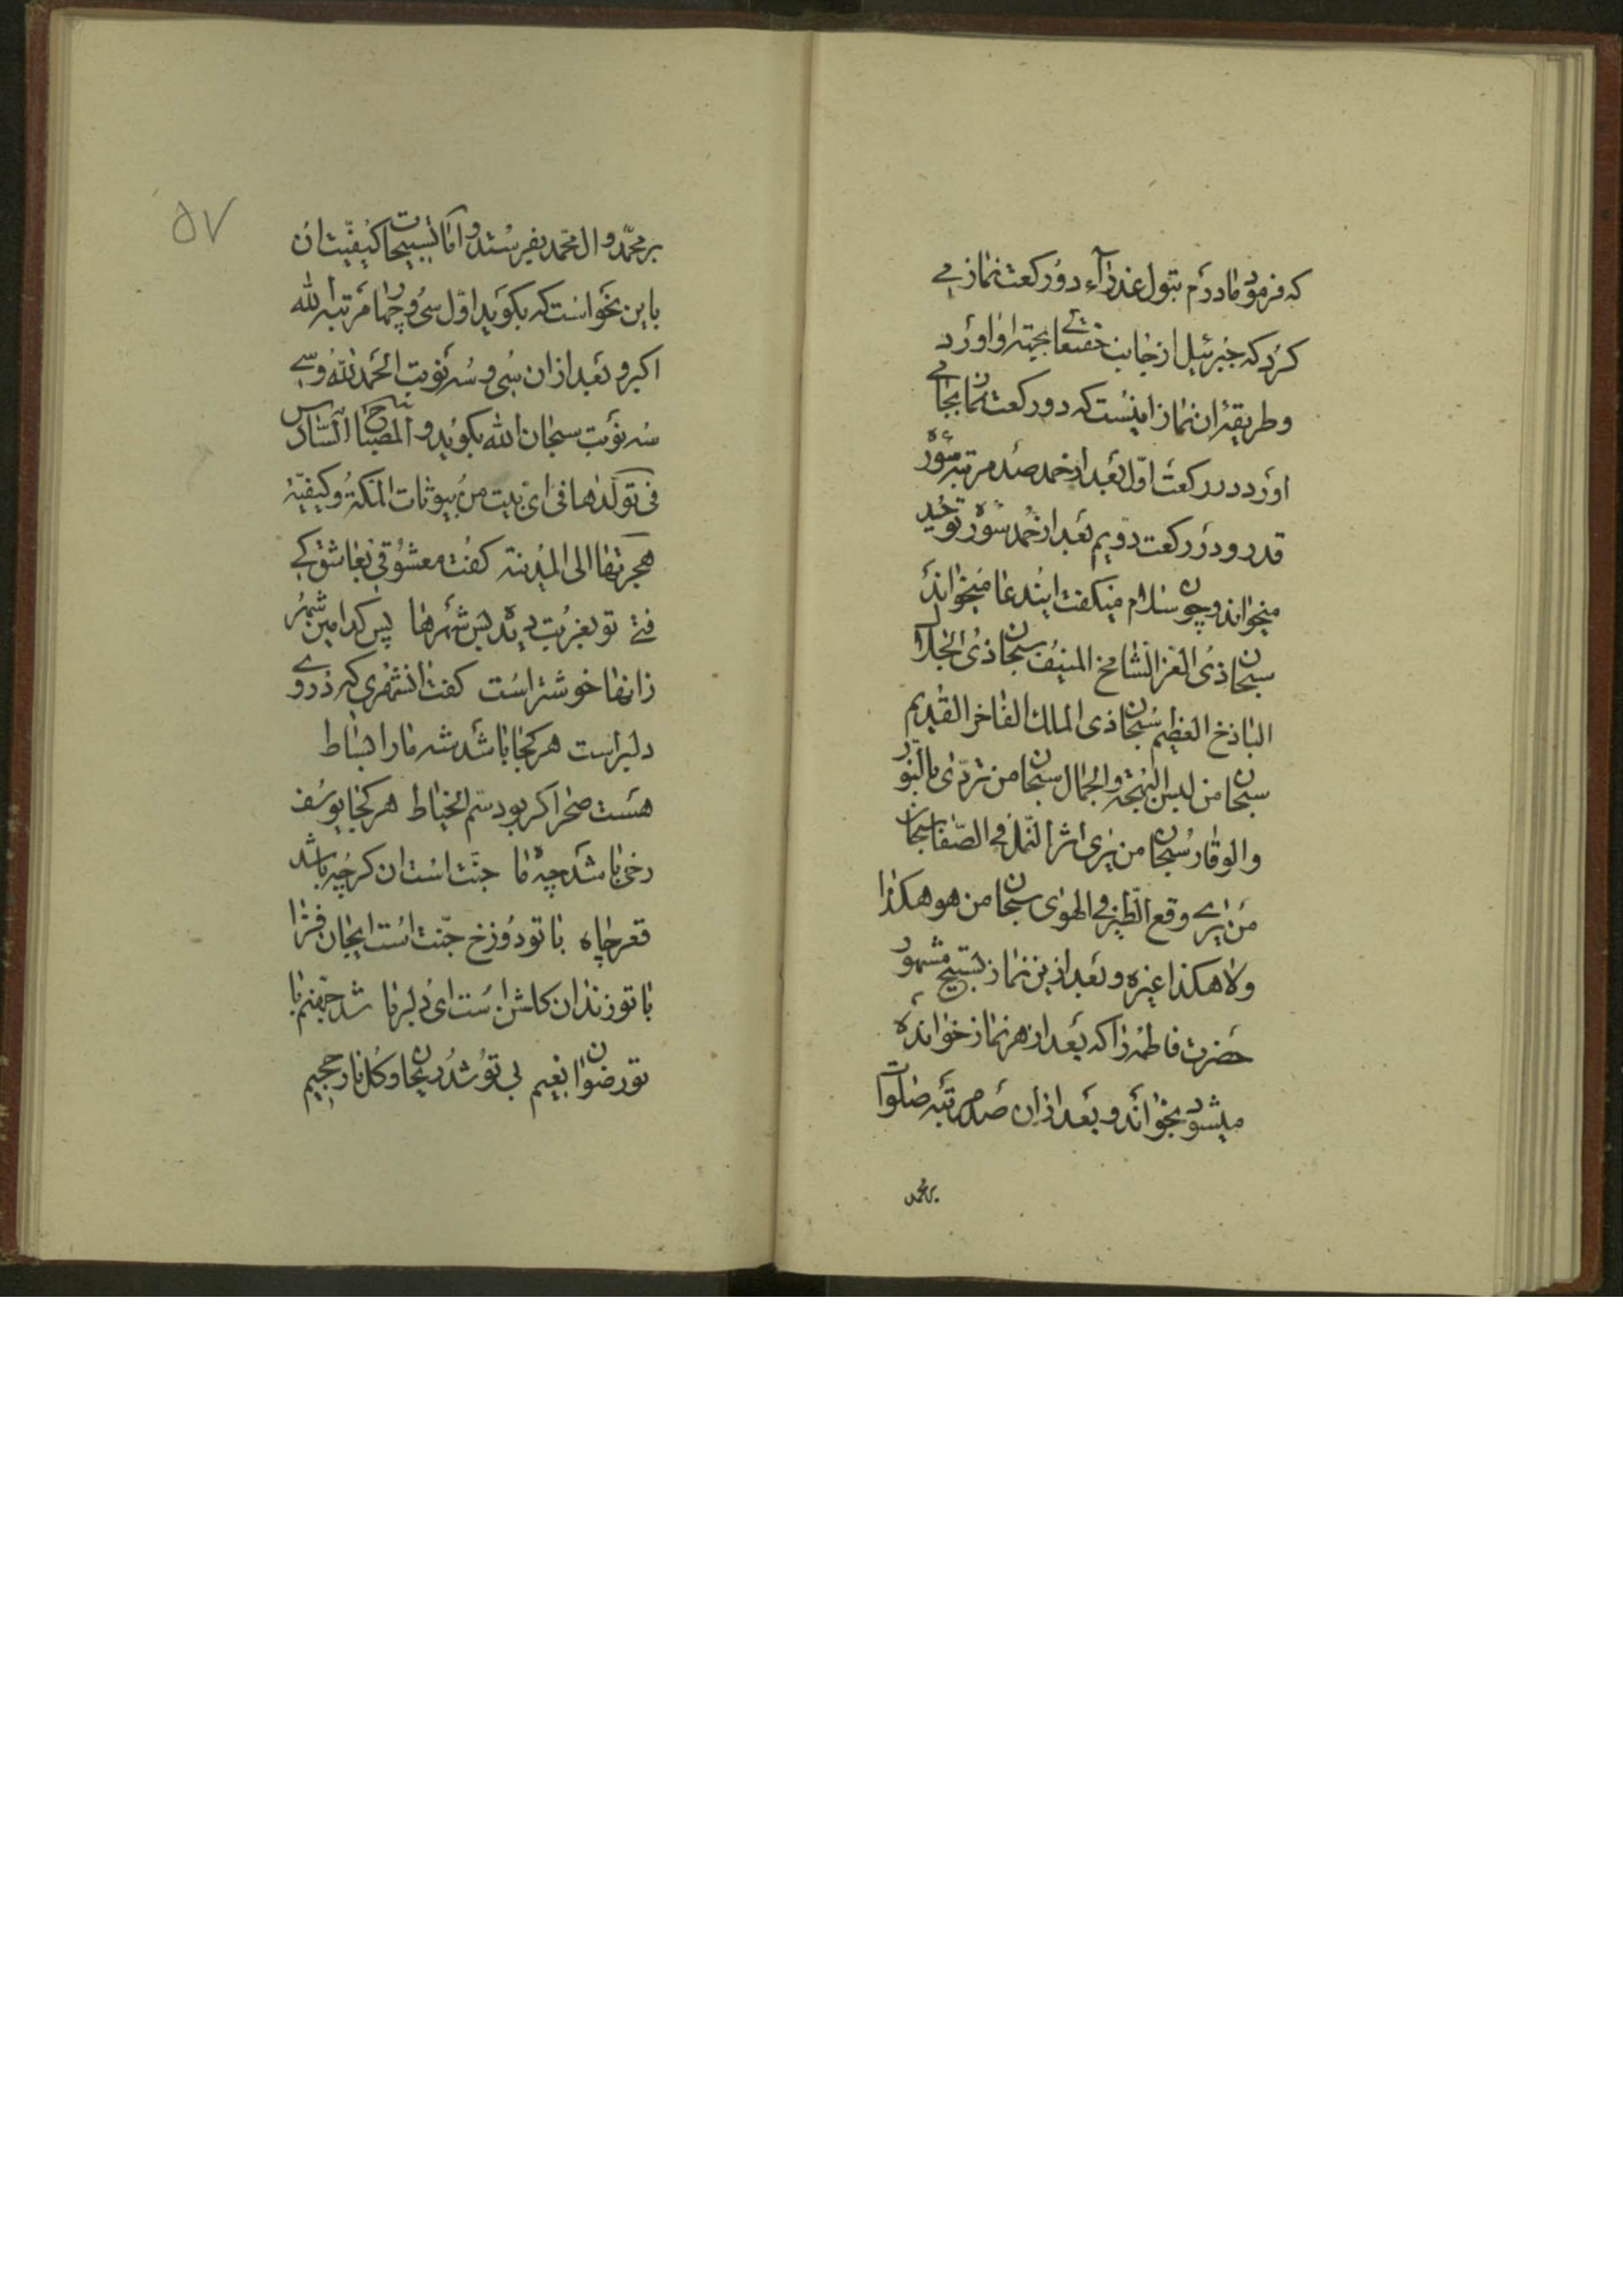 که فرمود مادرم بتول عذرآء دو رکعت نماز می
کرد که جبرئیل از جانب حقتعالی بجهة او آورد
و طریقهٔ آن نماز اینست که دو رکعت نماز بجا می
آورد در رکعت اول بعد از حمد صد مرتبه سورهٔ
قدر و در رکعت دویم بعد از حمد سورهٔ توحید
میخواند و چون سلام میکفت ایندعا میخواند
سبحان ذی العز الشامخ المنیف سبحان ذی الجلال
الباذخ العظیم سبحان ذی الملك الفاخر القدیم
سبحان من لبس البهجة والجمال سبحان من تردّی بالنّور
والوقار سبحان من یری اثر النّمل فی الصّفا سبحان
من یری وقع الطّیر فی الهوی سبحان من هو هکذا
ولا هکذا غیره و بعد ازین نماز تسبیح مشهور
حضرت فاطمه را که بعد از هر نماز خوانده
میشود بخواند و بعد از ان صد مرتبه صلوات
بر محمد
۵۷
بر محمّد و ال محمّد بفرستد و امّا تسبیحات کیفیّت ان
باین نحو است که بکوید اوّل سی و چهار مرتبه الله
اکبر و بعد از ان سی و سه نوبت الحمد لله و سی
سه نوبت سبحان الله بکوید و المصباح السّادس
فی تولدها فی ای بیت من بیوتات المکة و کیفیّة
هجرتها الی المدینة کفت معشوقی بعاشق کی
فتی تو بغربت دیدهٔ بس شهرها پس کدامین شهر
زانها خوشتر است کفت انشهری که در وی
دلبر است هر کجا باشد شه ما را بساط
هست صحرا کر بود سمّ الخیاط هر کجا یوسف
رخی باشد چه ماه جنّت است ان کرچه باشد
قعر چاه با تو دوزخ جنّت است ایجان فزا
با تو زندان کلشن است ای دلربا شد جهنّم با
تو رضوان نعیم بی تو شد ریحان و کل نار جحیم